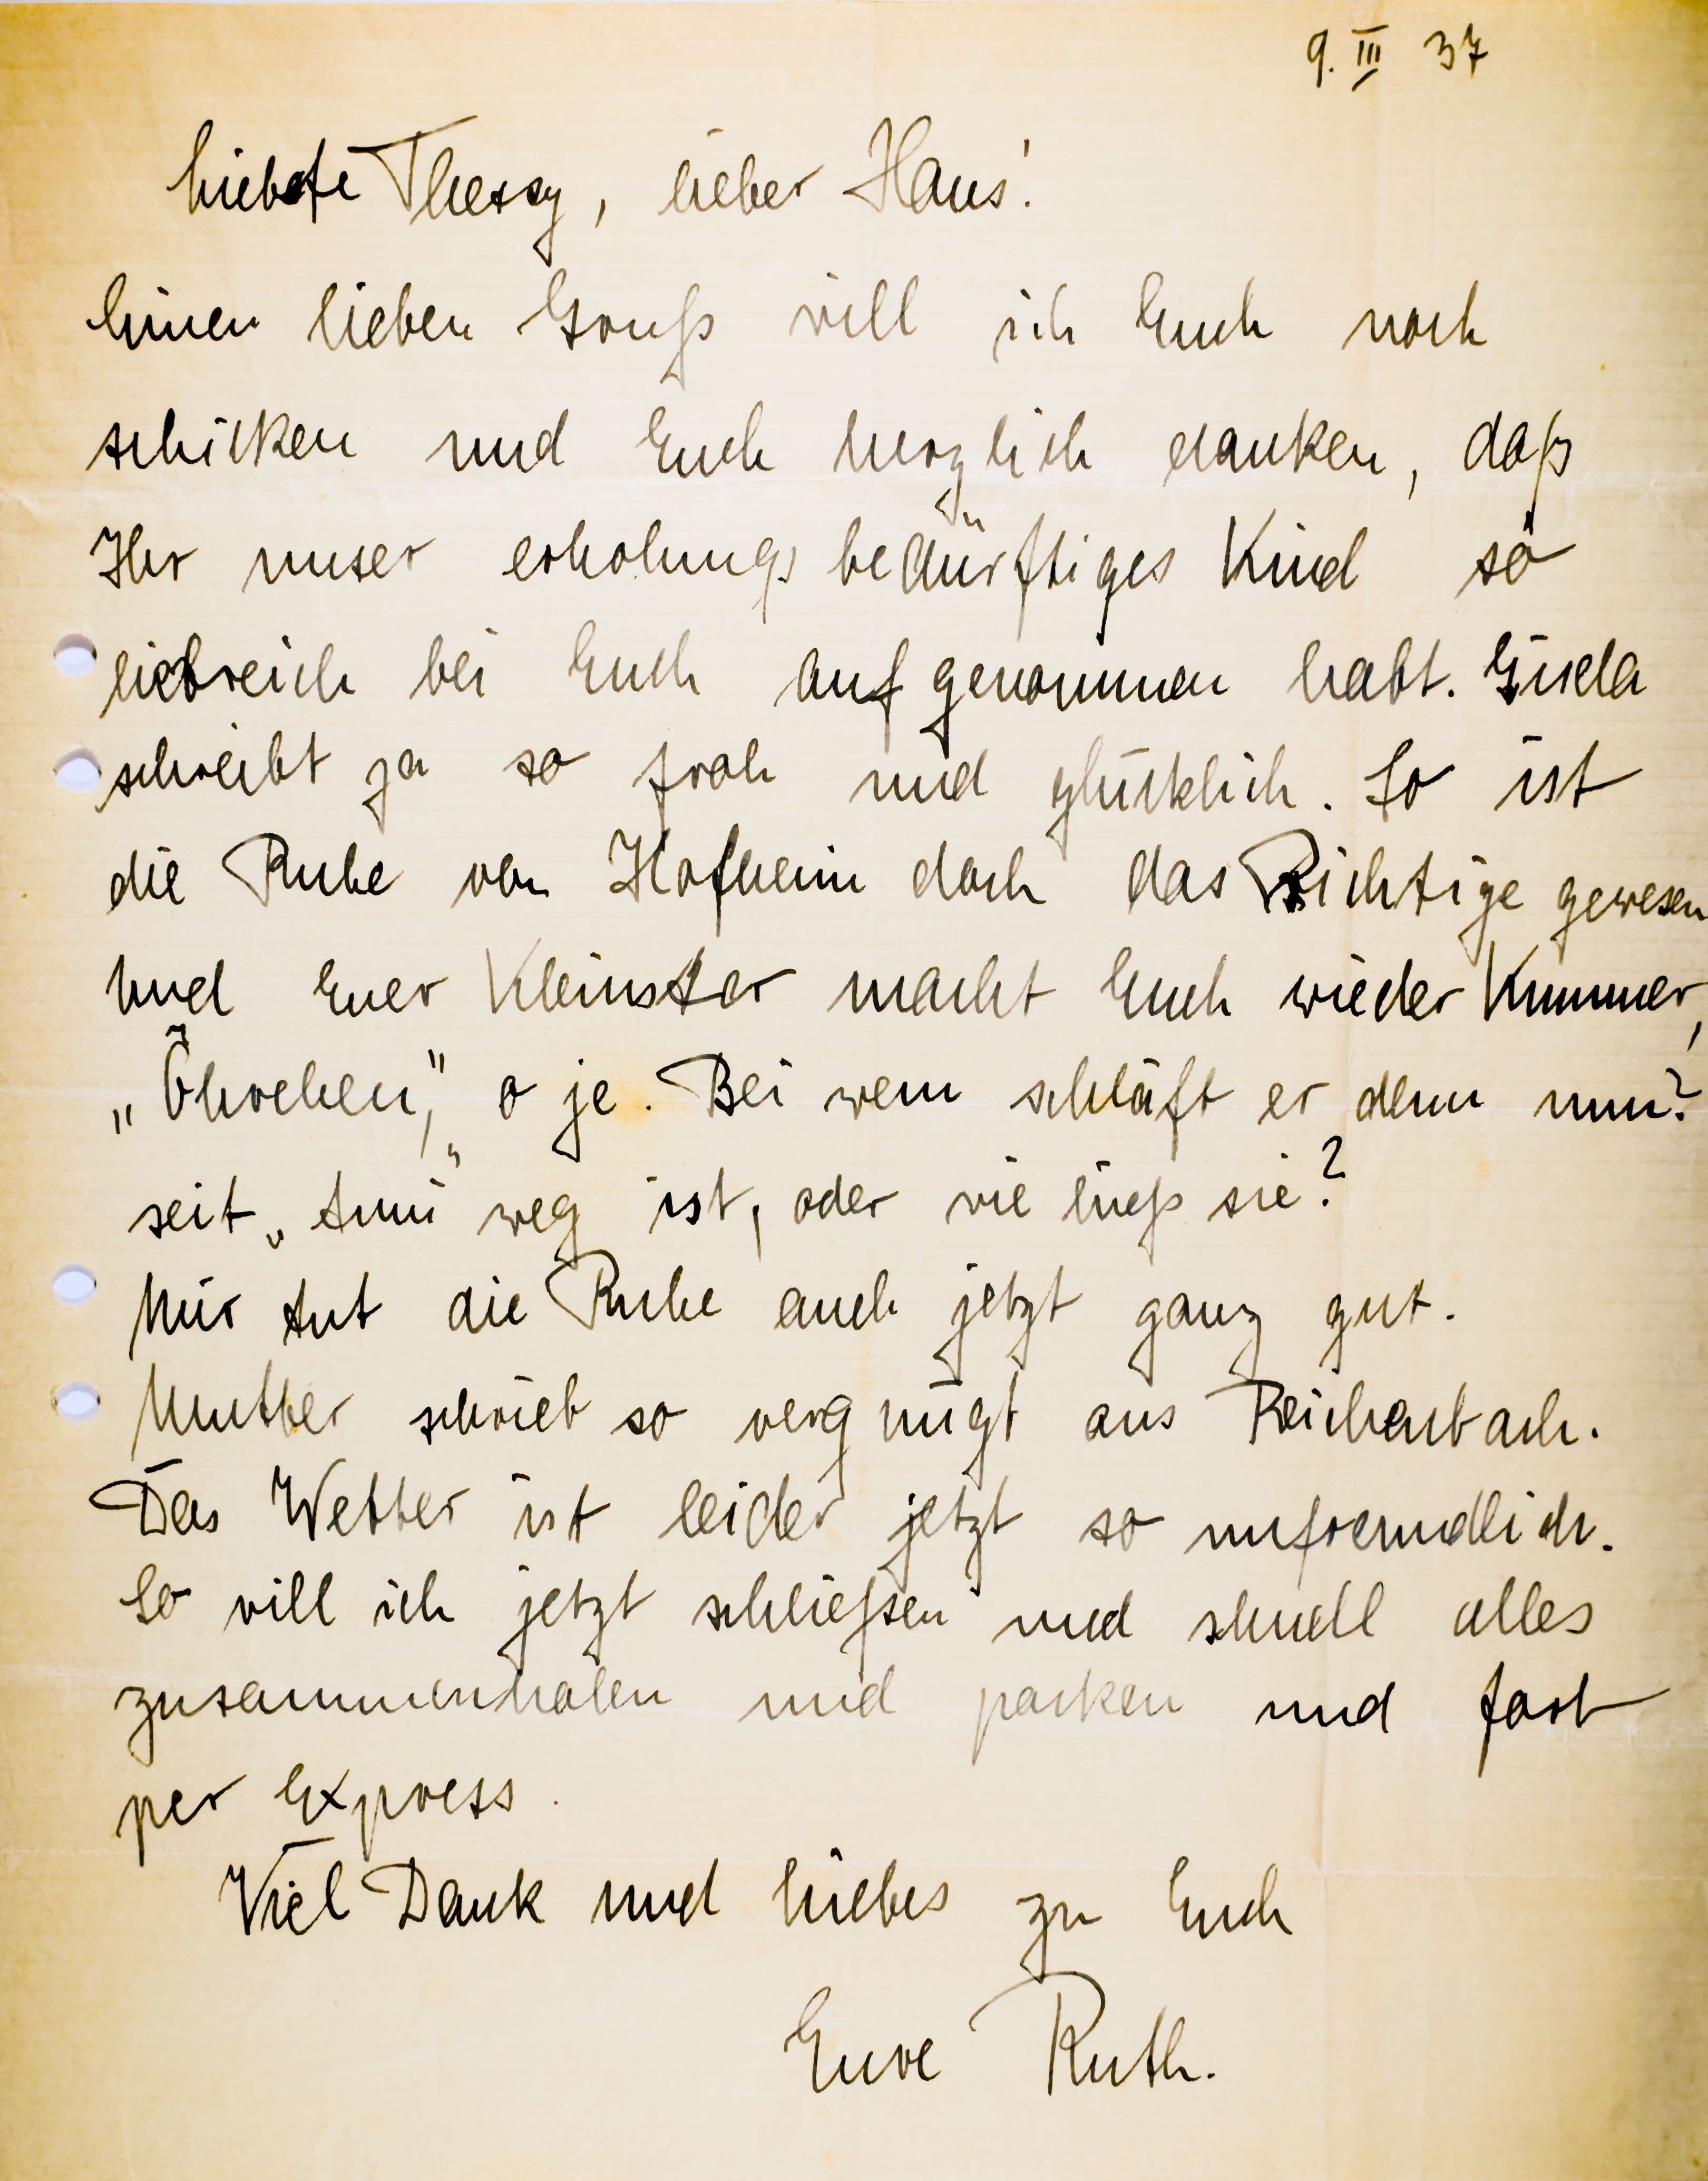 9. III 37
Liebste Thessy, lieber Hans!
Einen lieben Gruß will ich Euch noch
schicken und Euch herzlich danken, daß
Ihr unser erholungsbedürftiges Kind so
liebreich bei Euch aufgenommen habt. Gisela
schreibt ja so froh und glücklich. So ist
die Ruhe von Hofheim doch das Richtige gewesen
Und Euer Kleinster macht Euch wieder Kummer,
„Öhrchen", o je. Bei wem schläft er denn nun?
seit „Anni" weg ist, oder wie hieß sie?
Mir tut die Ruhe auch jetzt ganz gut.
Mutter schrieb so vergnügt aus Reichenbach.
Das Wetter ist leider jetzt so unfreundlich.
So will ich jetzt schließen und schnell alles
zusammenholen und packen und fort
per Express.
Viel Dank und Liebes zu Euch
Eure Ruth.